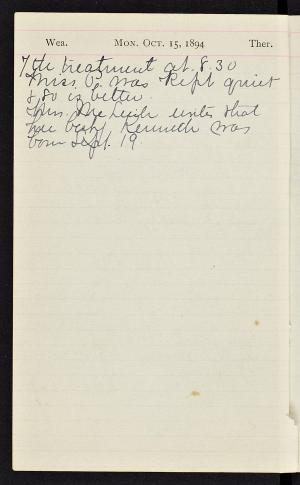 Wea. MON. OCT. 15, 1894 Ther.
7th treatment at 8.30
Miss B. was kept quiet
& so is better.
Mrs. McLeish writes that
her baby Kenneth was
born Sept. 19.